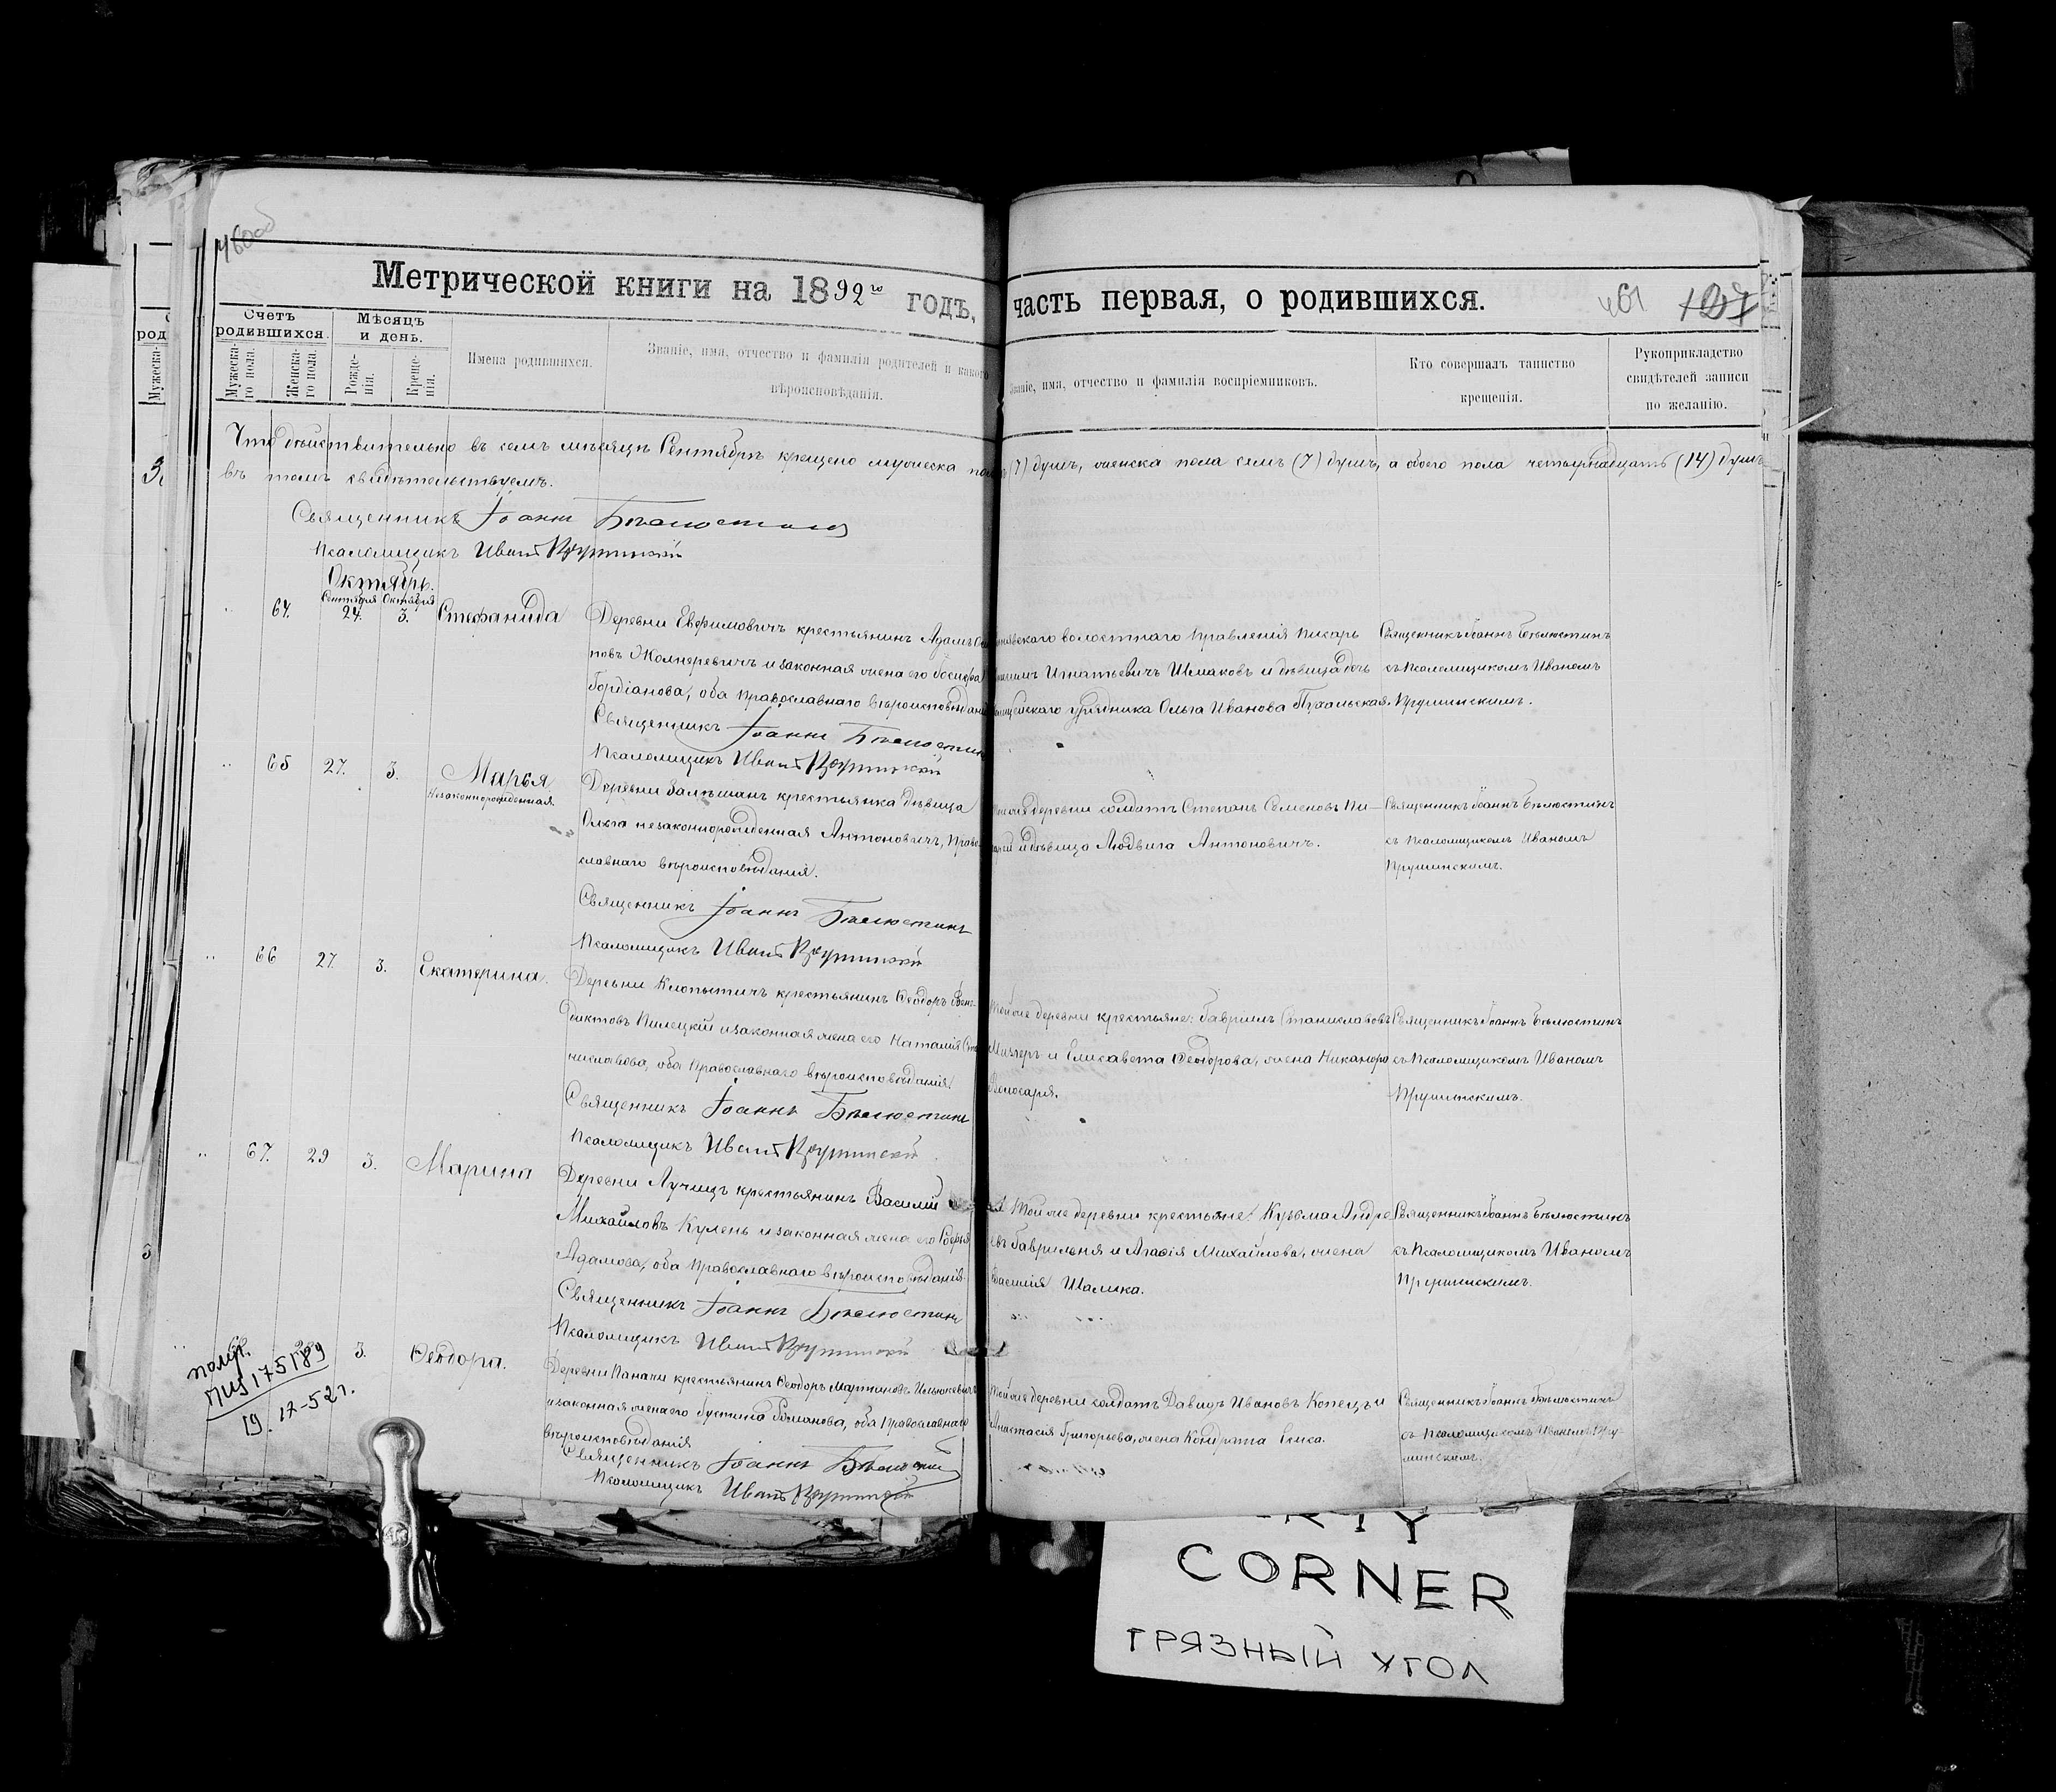 460об
Метрической книги на 1892го годъ, часть первая, о родившихся.
461 127
Счетъ родившихся.
Мѣсяцъ и день.
Мужеска-го пола.
Женска-го пола.
Рожде-нія.
Креще-нія.
Имена родившихся.
Званіе, имя, отчество и фамилія родителей и какого
вѣроисповѣданія.
Званіе, имя, отчество и фамилія воспріемниковъ.
Кто совершалъ таинство
крещенія.
Рукоприкладство
свидѣтелей записи
по желанію.
Что дѣйствительно въ семъ мѣсяцѣ Сентябрѣ крещено мужеска (7) душъ, женска пола семь (7) душъ, а обоего пола четырнадцать (14) душъ
въ томъ свидѣтельствуемъ.
Священникъ Іоаннъ Бѣлюстинъ
Псаломщикъ Иванъ Прушинскій
Октябрь.
Сентября Октября
64. 24. 3. Стефанида
Деревни Евфимовичъ крестьянинъ Адамъ
повъ Жолнеревичъ и законная жена его
Гордіанова, оба православнаго вѣроисповѣданія
Священникъ Іоаннъ Бѣлюстинъ
Псаломщикъ Иванъ Прушинскій
волостнаго правленія писарь
Игнатьевичъ Шмаковъ и дѣвица дочь
урядника Ольга Иванова
Священникъ Іоаннъ Бѣлюстинъ
съ Псаломщикомъ Иваномъ
Прушинскимъ.
65 27. 3. Марья
Незаконнорожденная
Деревни Залѣшанъ крестьянка дѣвица
Ольга незаконнорожденная Антоновичъ, Право-
славнаго вѣроисповѣданія.
Священникъ Іоаннъ Бѣлюстинъ
Псаломщикъ Иванъ Прушинскій
деревни солдатъ Степанъ Семеновъ
и дѣвица Людвига Антоновичъ.
Священникъ Іоаннъ Бѣлюстинъ
съ Псаломщикомъ Иваномъ
Прушинскимъ.
66 27. 3. Екатерина.
Деревни Клопытичъ крестьянинъ Ѳеодоръ Вене-
диктовъ Пилецкій и законная жена его Наталія Ста
ниславова, оба Православнаго вѣроисповѣданія
Священникъ Іоаннъ Бѣлюстинъ
Псаломщикъ Иванъ Прушинскій
Той же деревни крестьяне: Гавріилъ Станиславовъ
и Елисавета Ѳеодорова, жена Никанора
Священникъ Іоаннъ Бѣлюстинъ
съ Псаломщикомъ Иваномъ
Прушинскимъ.
67. 29 3. Марина
Деревни Лучицъ крестьянинъ Василій
Михайловъ Кулень и законная жена его Софья
Адамова, оба Православнаго вѣроисповѣданія
Священникъ Іоаннъ Бѣлюстинъ
Псаломщикъ Иванъ Прушинскій
Той же деревни крестьяне: Кузьма Андре
евъ Гавриленя и Агаѳія Михайлова, жена
Василія Шамка.
Священникъ Іоаннъ Бѣлюстинъ
съ Псаломщикомъ Иваномъ
Прушинскимъ.
3. Ѳеодора.
Деревни крестьянинъ Ѳеодоръ Мартиновъ Ильюкевичъ
и законная жена его Іустина Романова, оба Православнаго
вѣроисповѣданія
Священникъ Іоаннъ Бѣлюстинъ
Псаломщикъ Иванъ Прушинскій
Той же деревни солдатъ Давидъ Ивановъ Копецъ и
Анастасія Григорьева, жена Кондрата
Священникъ Іоаннъ Бѣлюстинъ
съ Псаломщикомъ Иваномъ Пру-
шинскимъ.
175189
19.12-52г.
CORNER
ГРЯЗНЫЙ УГОЛ